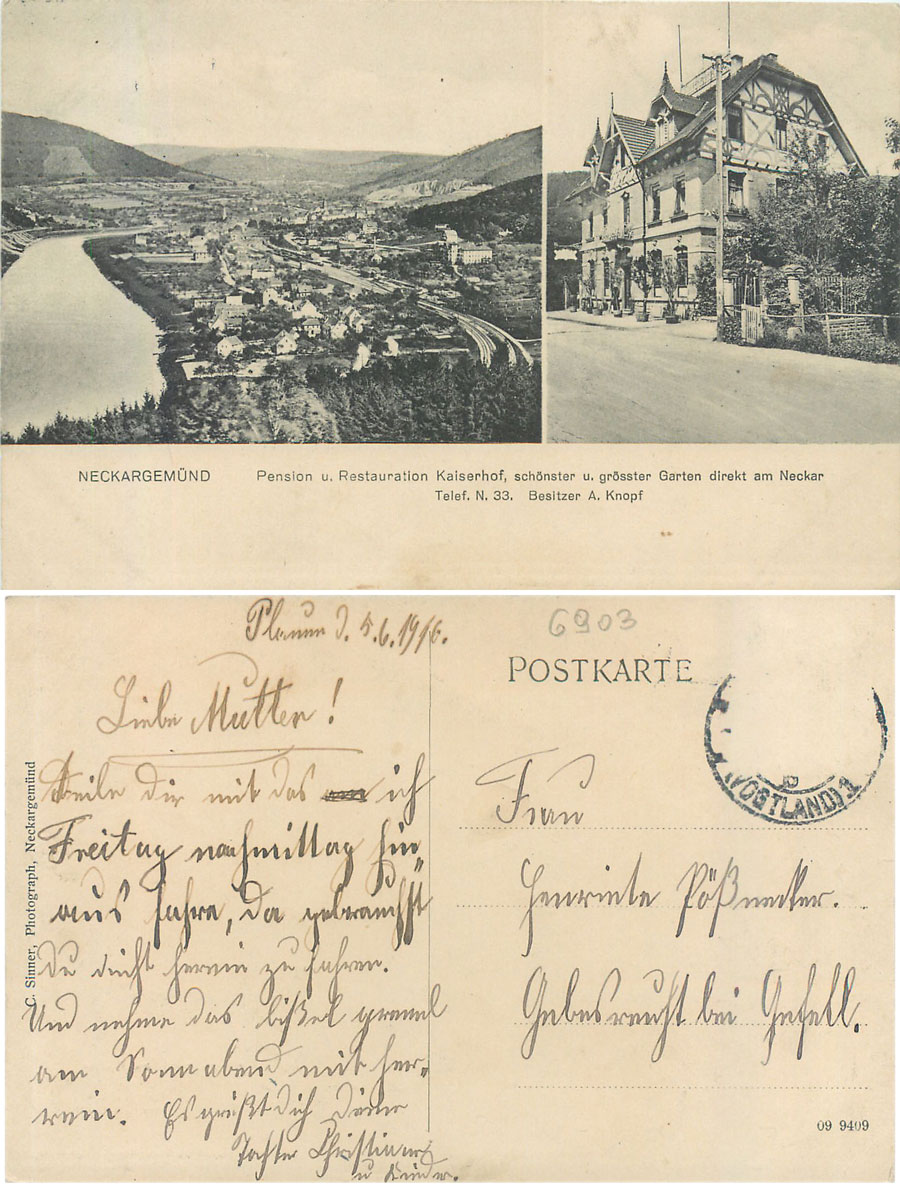 NECKARGEMÜND Pension u. Restauration Kaiserhof, schönster u. grösster Garten direkt am Neckar
Telef. N. 33. Besitzer A. Knopf
Plauen d. 5.6.1916.
6903
POSTKARTE
(VOGTLAND) 1
Liebe Mutter!
Teile dir mit das ich
Freitag nachmittag hin-
aus fahre, da gebrauchst
Du nicht herein zu fahren.
Und nehme das bißel
am Sonnabend mit her-
rein. Es grüßt dich Deine
Tochter Christiane
u Kinder.
C. Sinner, Photograph, Neckargemünd
Frau
Henriete Pößnecker.
Gebersreuth bei Gefell.
09 9409